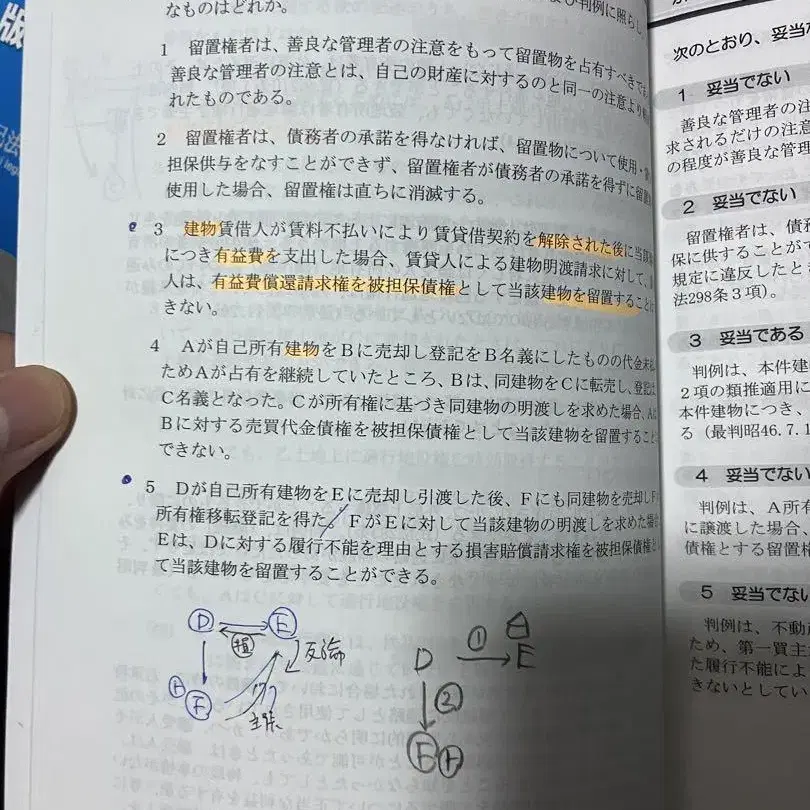 なものはどれか。
び判例に照らし、
1 留置権者は、善良な管理者の注意をもって留置物を占有すべきで
善良な管理者の注意とは、自己の財産に対するのと同一の注意より
れたものである。
2 留置権者は、債務者の承諾を得なければ、留置物について使用・
担保供与をなすことができず、留置権者が債務者の承諾を得ずに留置
使用した場合、留置権は直ちに消滅する。
3 建物賃借人が賃料不払いにより賃貸借契約を解除された後に当該
につき有益費を支出した場合、賃貸人による建物明渡請求に対して、
人は、有益費償還請求権を被担保債権として当該建物を留置することは
きない。
4 Aが自己所有建物をBに売却し登記をB名義にしたものの代金未
ためAが占有を継続していたところ、Bは、同建物をCに転売し、登記は
C名義となった。Cが所有権に基づき同建物の明渡しを求めた場合、Aは
Bに対する売買代金債権を被担保債権として当該建物を留置すること
できない。
5 Dが自己所有建物をEに売却し引渡した後、Fにも同建物を売却しFが
所有権移転登記を得た。FがEに対して当該建物の明渡しを求めた場合
Eは、Dに対する履行不能を理由とする損害賠償請求権を被担保債権と
て当該建物を留置することができる。
D E
損
反論
F
主張
D ① E
②
F
次のとおり、妥当
1 妥当でない
善良な管理者の注
求されるだけの注意
の程度が善良な管理
2 妥当でない
留置権者は、債務
保に供することが
規定に違反したと
法298条3項)。
3 妥当である
判例は、本件建
2項の類推適用に
本件建物につき、
る(最判昭46.7.1
4 妥当でない
判例は、A所有
に譲渡した場合、
債権とする留置権
5 妥当でない
判例は、不動産
ため、第一買主
た履行不能によ
きないとしてい